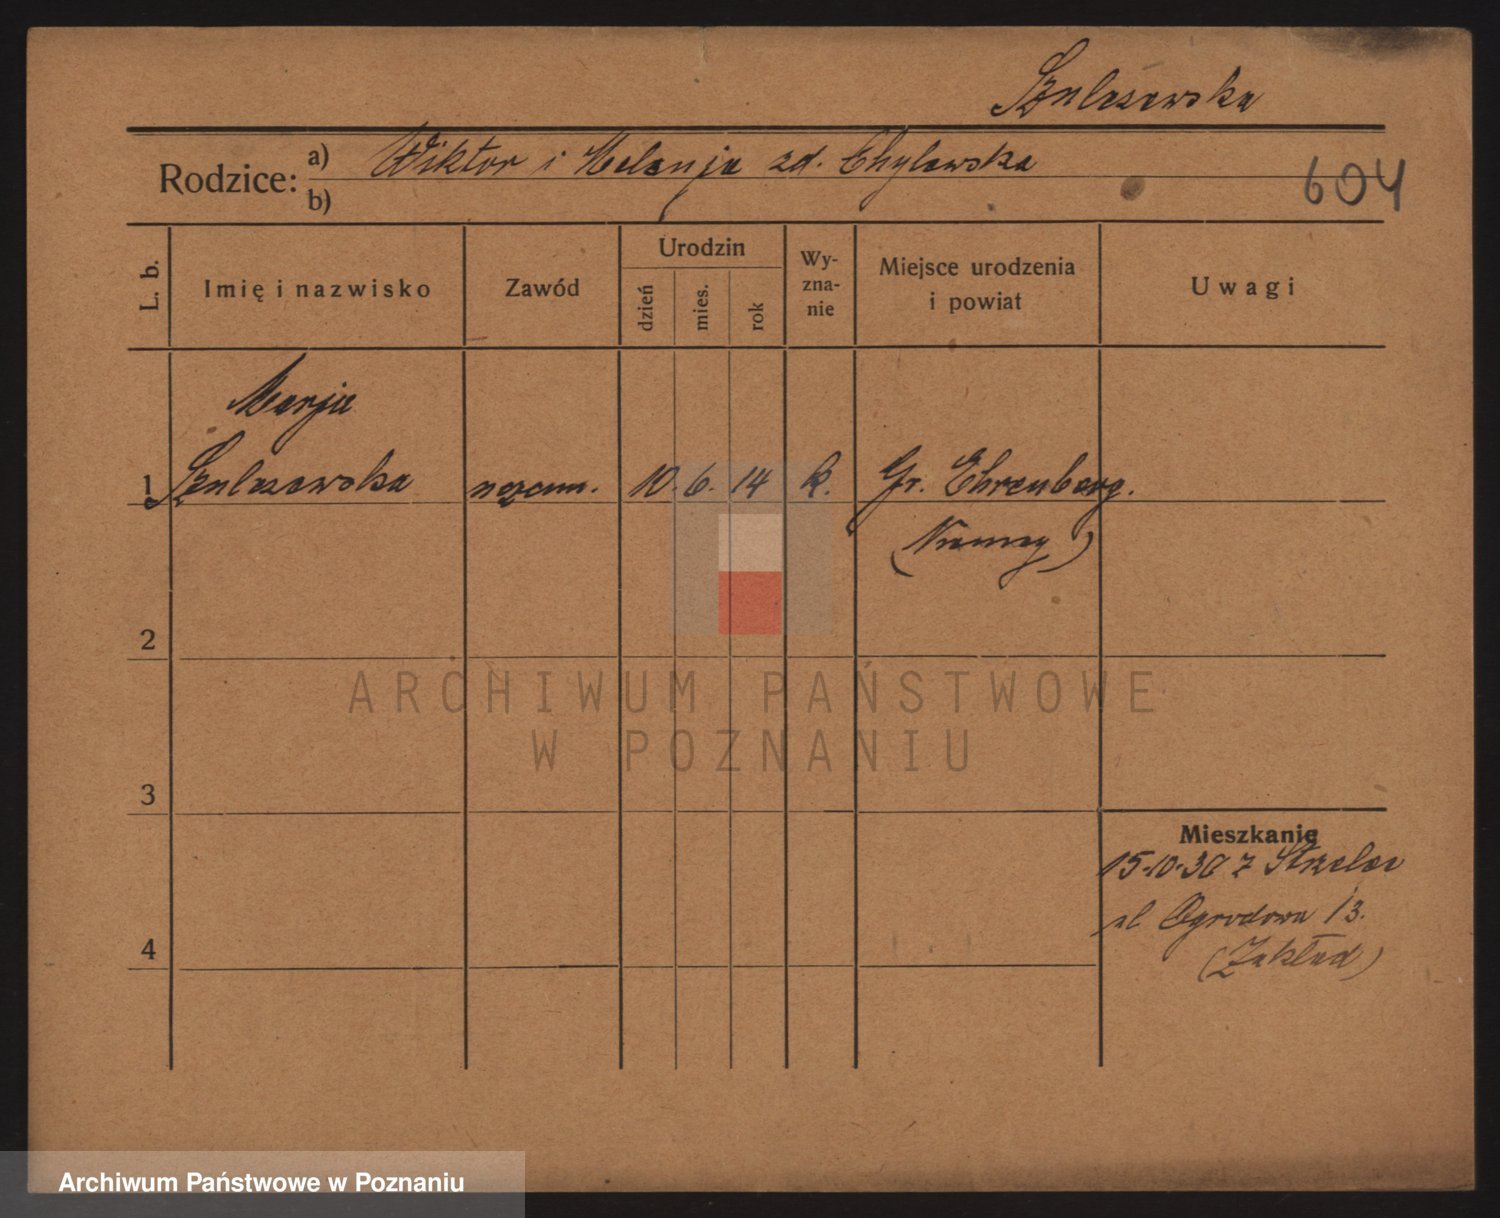 Szulczewska
Rodzice: a) Wiktor i Melanja zd. Chylewska
b)
604
L. b.
Imię i nazwisko
Zawód
Urodzin
dzień
mies.
rok
Wy-
zna-
nie
Miejsce urodzenia
i powiat
Uwagi
Marja
1 Szulczewska uczenn. 10. 6. 14 k. Gr. Ehrenberg.
(Niemcy)
2
ARCHIWUM PAŃSTWOWE
W POZNANIU
3
Mieszkanie
15-10-30 z
ul Ogrodowa 13.
(Zakład)
4
Archiwum Państwowe w Poznaniu